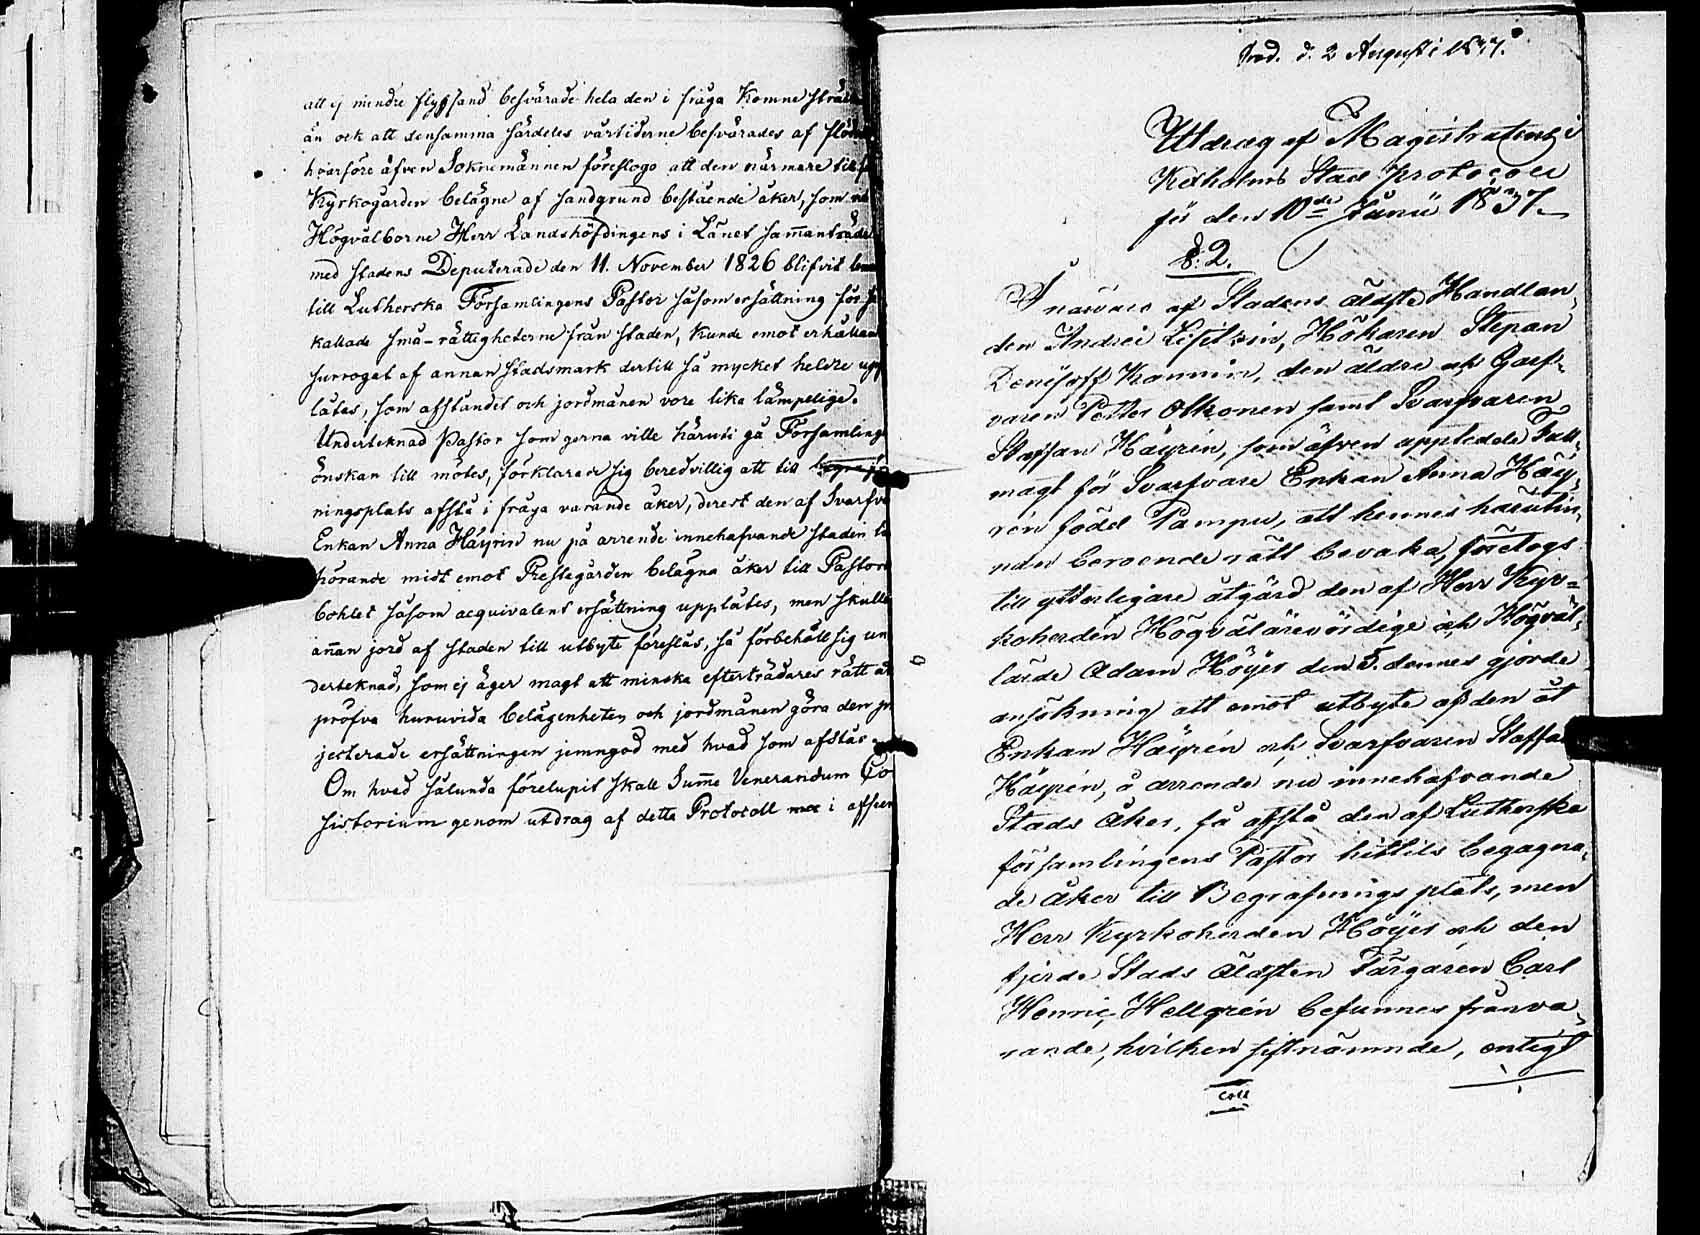 att ej mindre flygsand besvärade hela den i fråga komne
än ock att densamma särdeles vårtiderne besvärades af
hvarföre äfven Soknemännen föreslogo att den närmare till
Kyrkogården belägne af sandgrund bestående åker, som
Högvälborne Herr Landshöfdingens i Länet sammanträde
med stadens Deputerade den 11. November 1826 blifvit
till Lutherska Församlingens Pastor såsom ersättning för
kallade små-rättigheterne från staden, kunde emot erhållan
surrogat af annan stadsmark dertill så mycket heldre upp
låtas, som afståndet och jordmånen vore lika lämpelige.
Undertecknad Pastor som gerna ville häruti gå Församlings
önskan till mötes, förklarade sig beredvillig att till begraf
ningsplats afstå i fråga varande åker, derest den af Svarfva
Enkan Anna Häyrin nu på arrende innehafvande staden
hörande midt emot Prestegården belägna åker till Pastors
bohlet såsom aequivalent ersättning upplåtes, men skulle
annan jord af staden till utbyte föreslås, så förbehåll sig un
derteknad, som ej äger magt att minska efterträdares rätt at
pröfva huruvida belägenheten och jordmånen göra den pro
jecterade ersättningen jemngod med hvad som afstås.
Om hvad sålunda förelupit skall Summe Venerandum Con
sistorium genom utdrag af detta Protocoll i afseen
Ink. d. 2 Augusti 1837.
Utdrag af Magistratens i
Kexholms Stads protocoll
för den 10de Junii 1837.
§. 2.
I närvaro af Stadens äldste Handlan¬
den Andrei Lisitzin, Hökaren Stepan
Denisoff Krannin, den äldre och Garf¬
varen Petter Olkonen samt Svarfvaren
Staffan Häyrén, som äfven uppledde Full¬
magt för Svarfvare Enkan Anna Häy¬
rén född Pampu, att hennes häruti
beroende rätt bevaka, företogs
till ytterligare åtgärd den af Herr Kyr¬
koherden Högvälärevördige och Högväl¬
lärde Adam Höijer den 5. dennes gjorde
ansökning att emot utbyte af den åt
Enkan Häyrén och Svarfvaren Staffan
Häyrén, å arrende nu innehafvande
Stads Åker, få afstå den af Lutherska
församlingens Pastor hittils begagna¬
de Åker till Begrafnings plats, men
Herr Kyrkoherden Höijer och den
fjerde Stads Äldsten Färgaren Carl
Henric Hellgrén befunnes frånva¬
rande, hvilken sistnämnde, enligt
Coll